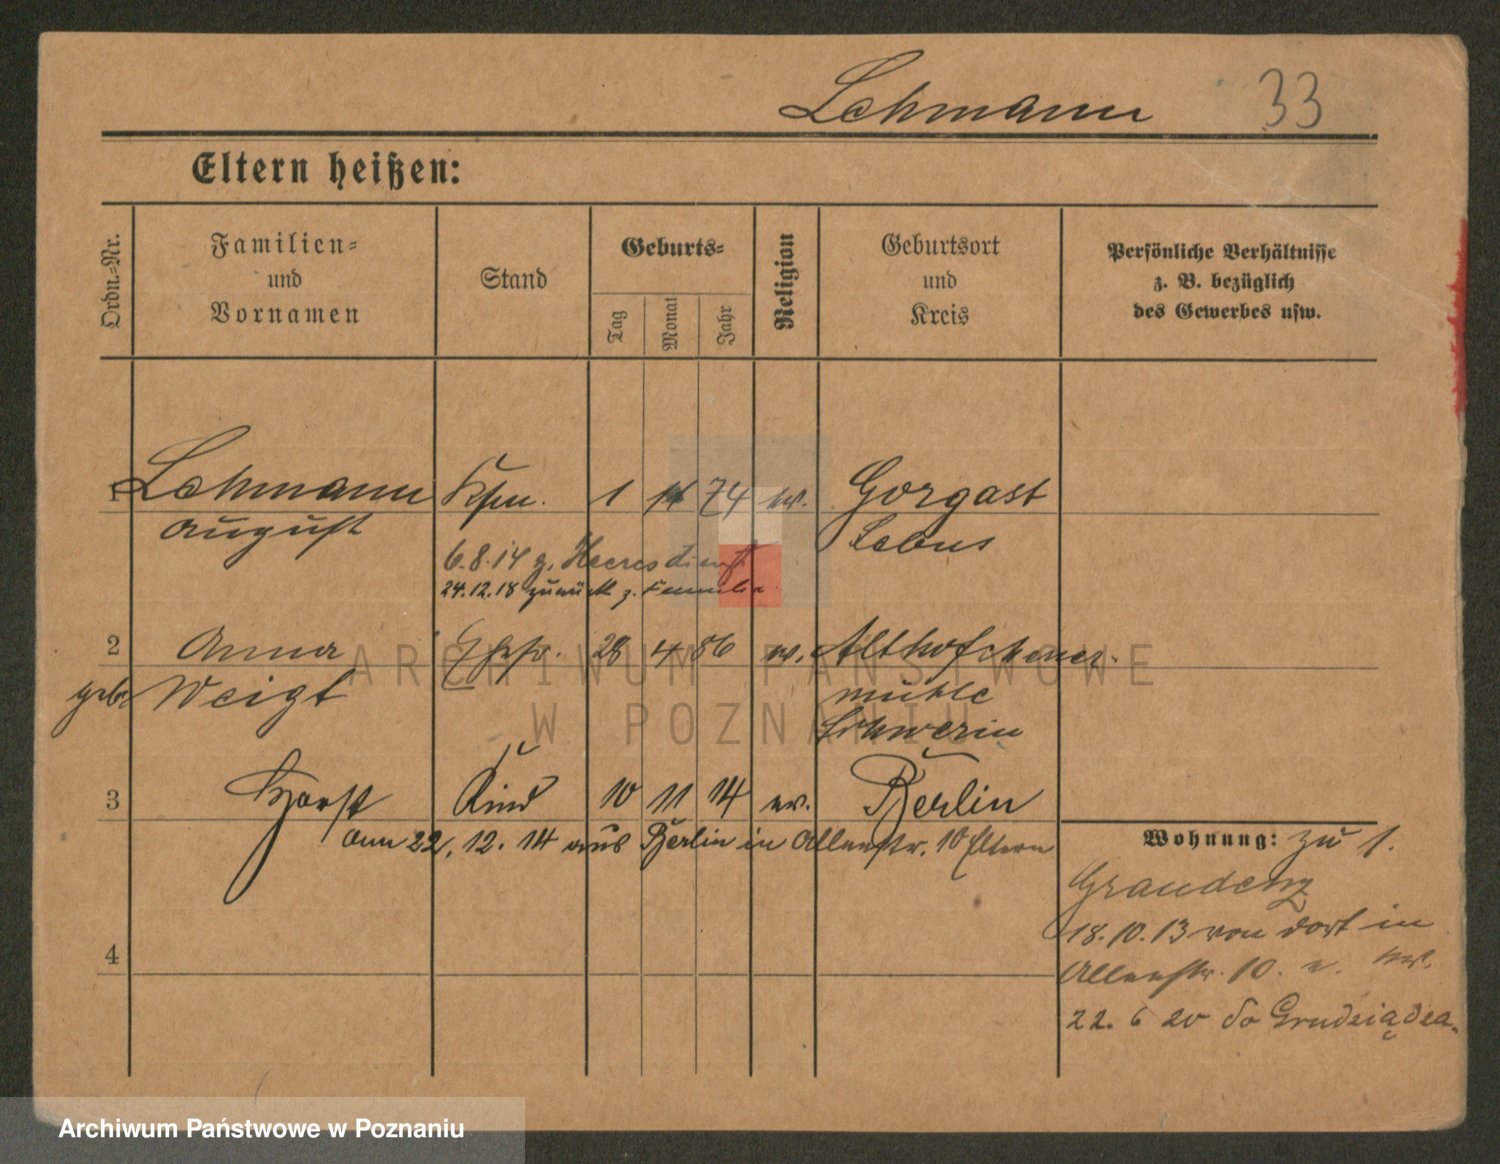 Lehmann 33
Eltern heißen:
Ordn.-Nr.
Familien-
und
Vornamen
Stand
Geburts-
Tag
Monat
Jahr
Religion
Geburtsort
und
Kreis
Persönliche Verhältnisse
z. B. bezüglich
des Gewerbes usw.
1 Lehmann Kfm. 1 11 74 ev. Gorgast
August Lebus
6.8.14 z. Heeresdienst
24.12.18 zurück z. Familie
2 Anna Ehefr. 28 4 86 ev.
geb. Weigt
mühle
Schwerin
3 Horst Kind 10 11 14 ev. Berlin
am 22.12.14 aus Berlin in Allenstr. 10 Eltern
4
Wohnung: zu 1.
Graudenz
18.10.13 von dort in
Allenstr. 10.
22. 6 20 do Grudziądza.
ARCHIWUM PAŃSTWOWE
W POZNANIU
Archiwum Państwowe w Poznaniu